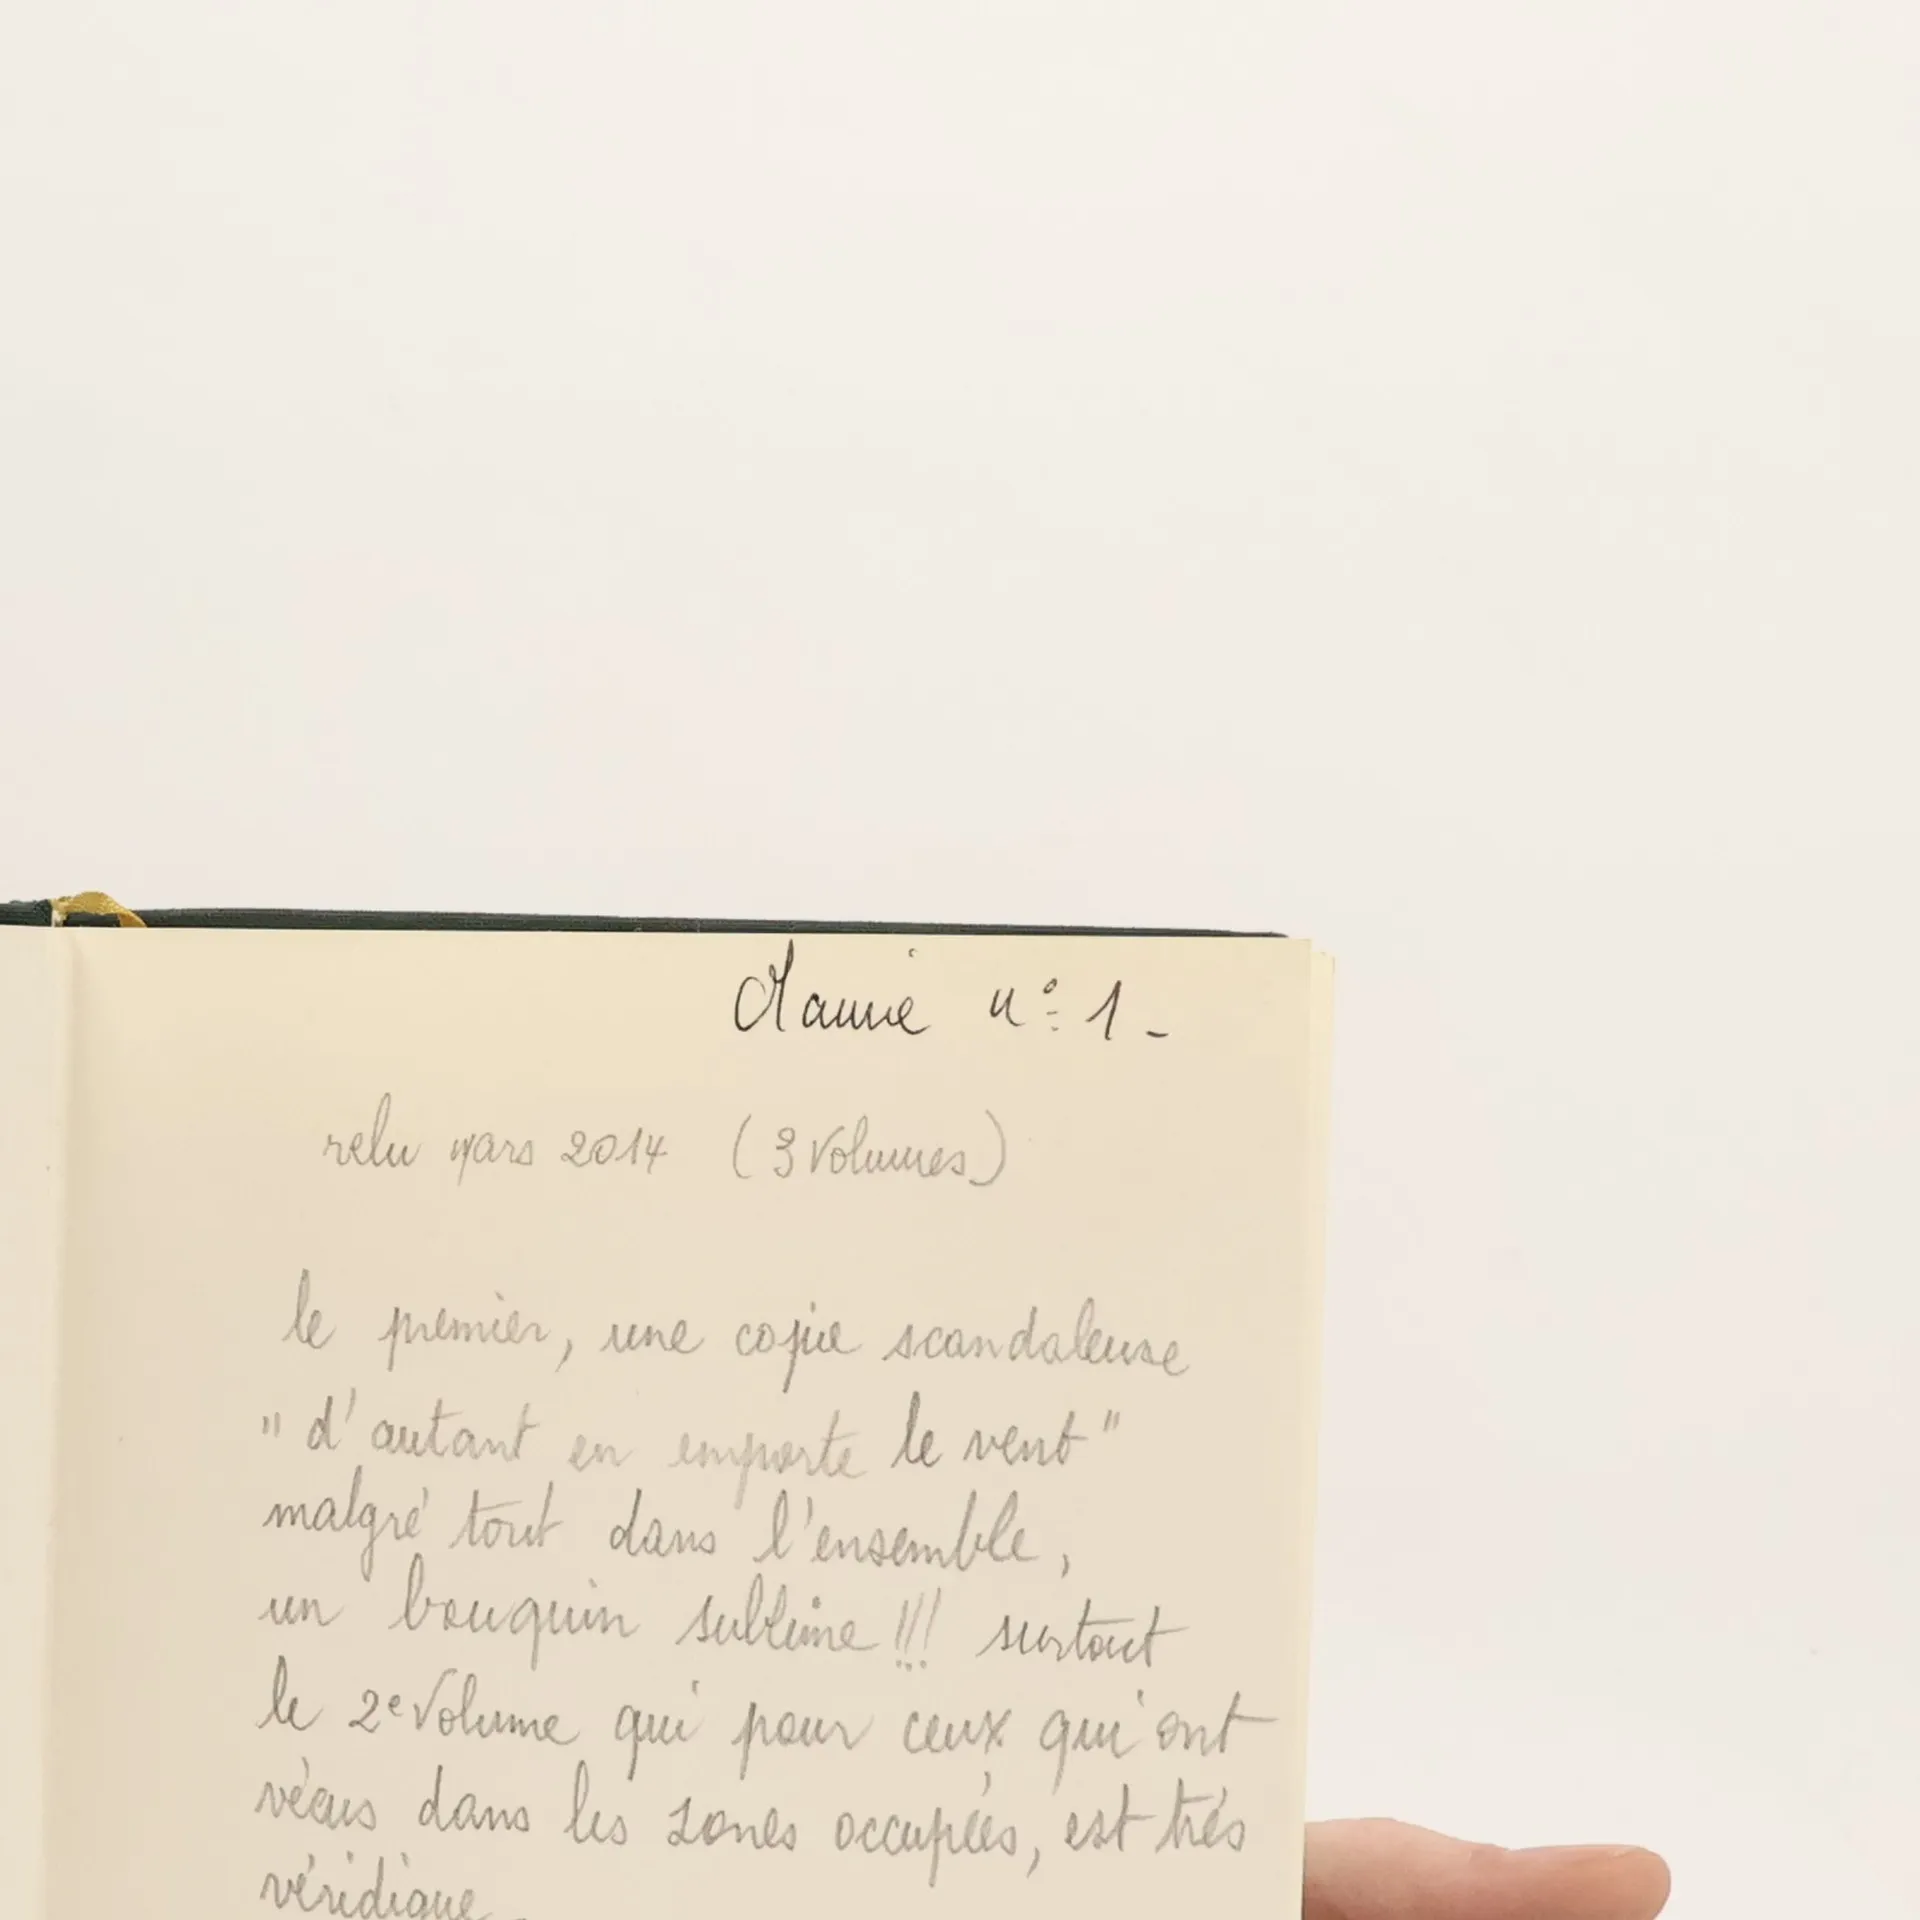 Mamie n° 1 -
relu mars 2014 (3 Volumes)
le premier, une copie scandaleuse
"d'autant en emporte le vent"
malgré tout dans l'ensemble,
un bouquin sublime !!! surtout
le 2e Volume qui pour ceux qui ont
vécus dans les zones occupées, est très
véridique.